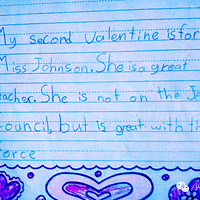 My second valentine is for
Miss Johnson. She is a great
teacher. She is not on the Je
Council, but is great with th
Force